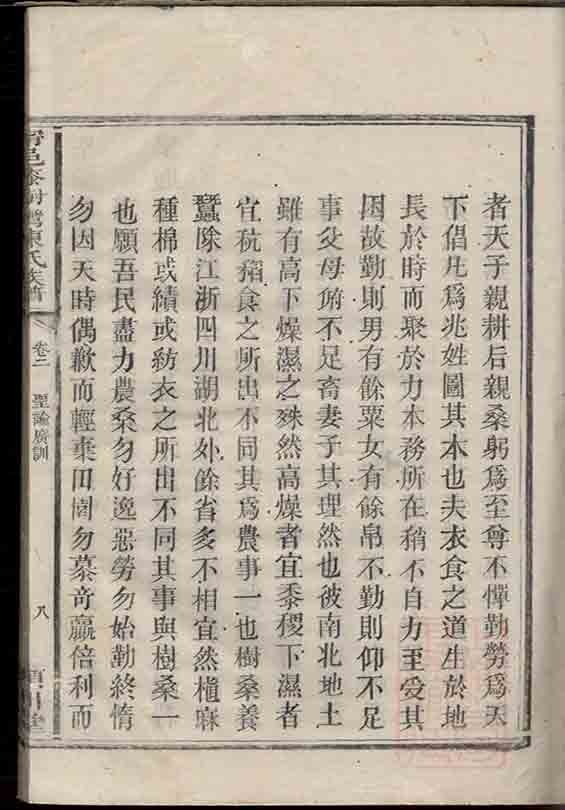 者天子親耕后親桑躬爲至尊不憚勤勞爲天
下倡凡爲兆姓圖其本也夫衣食之道生於地
長於時而聚於力本務所在稍不自力至受其
困故勤則男有餘粟女有餘帛不勤則仰不足
事父母俯不足畜妻子其理然也彼南北地土
雖有高下燥濕之殊然高燥者宜黍稷下濕者
宜秔稻食之所出不同其爲農事一也樹桑養
蠶除江浙四川湖北外餘省多不相宜然植麻
種棉或績或紡衣之所出不同其事與樹桑一
也願吾民盡力農桑勿好逸惡勞勿始勤終惰
勿因天時偶歉而輕棄田園勿慕奇贏倍利而
邑 陳氏族譜 卷二 聖諭廣訓 八 堂